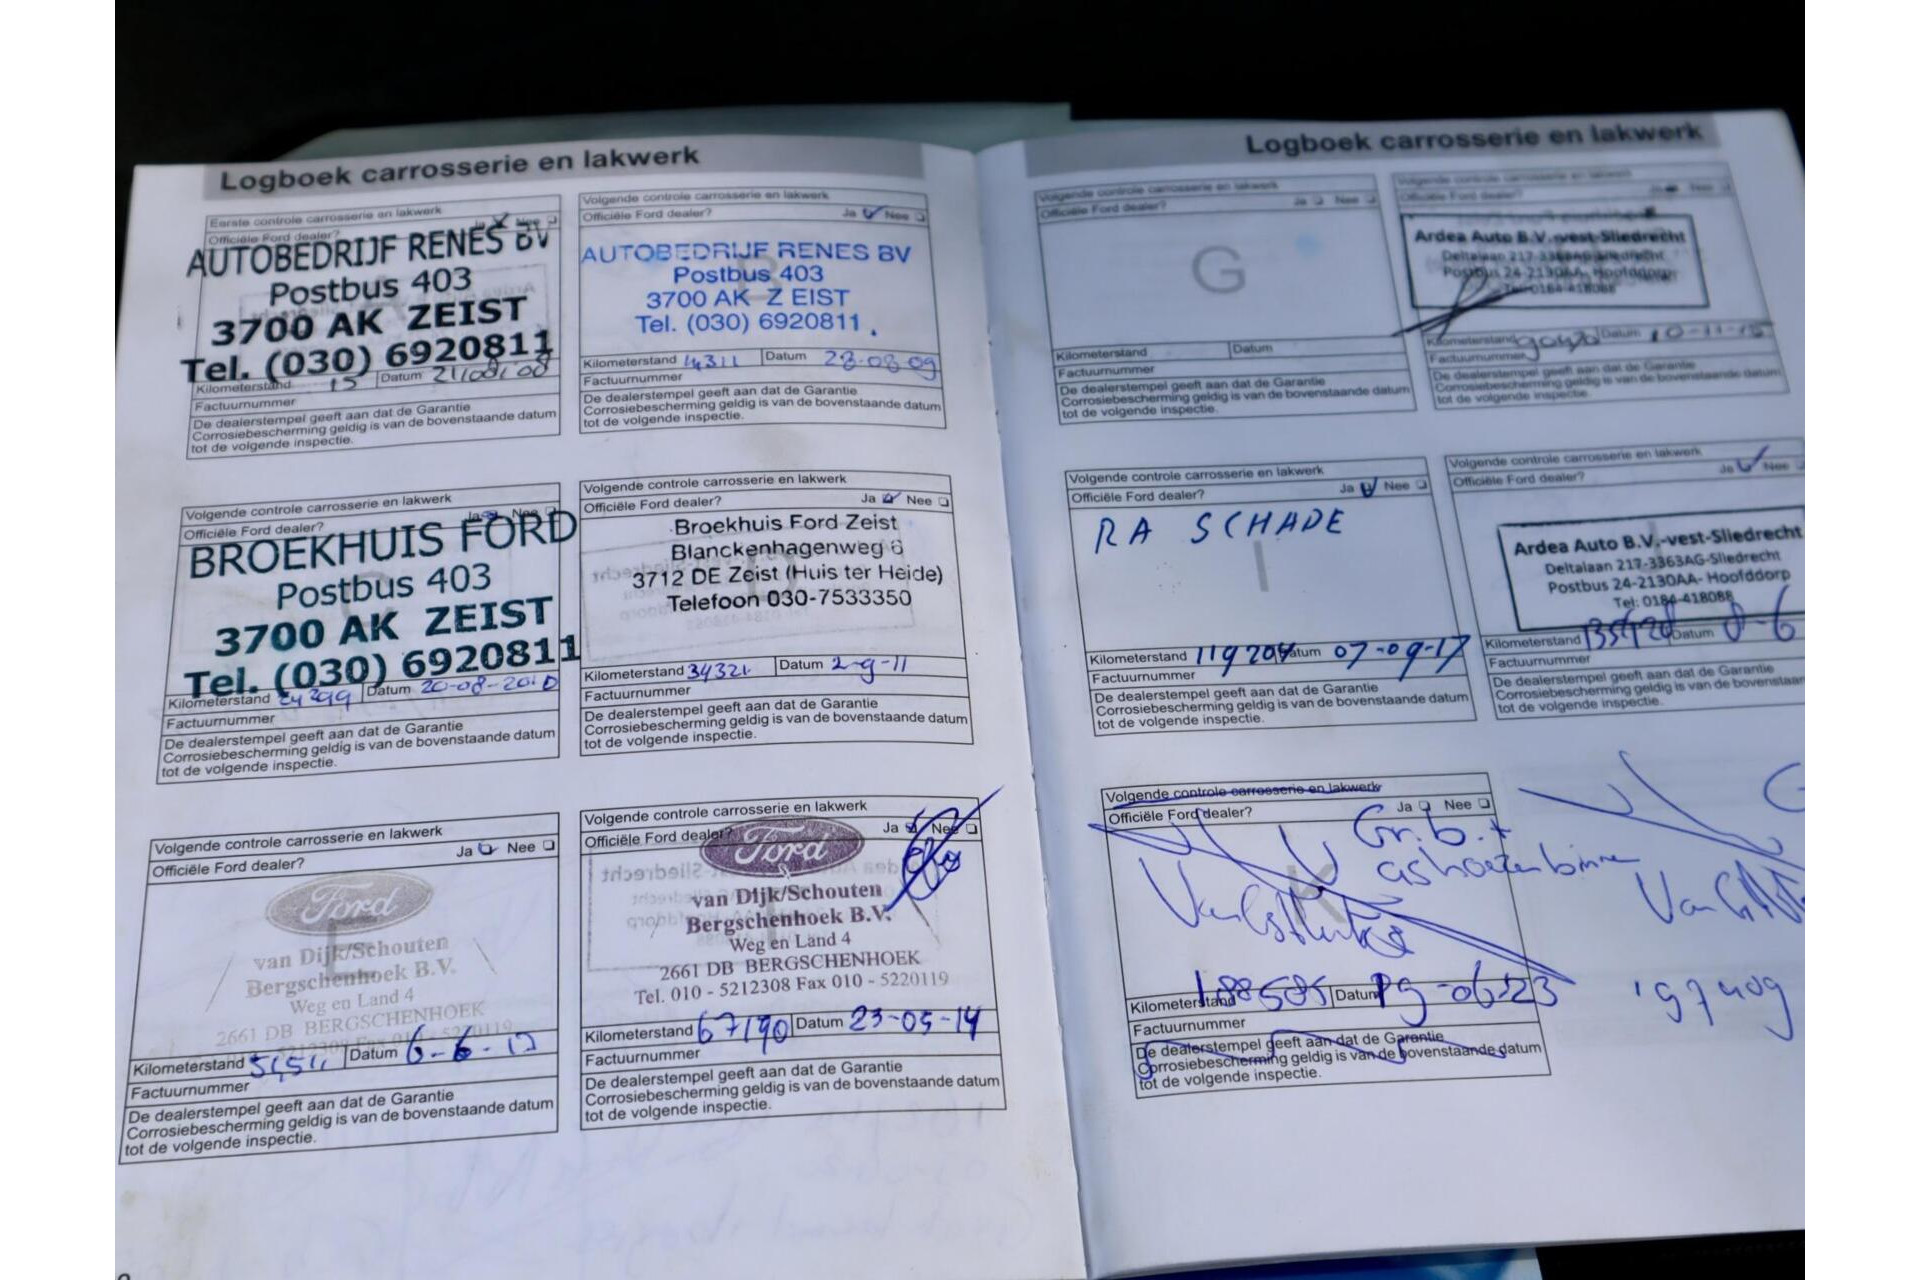 Logboek carrosserie en lakwerk
Eerste controle carrosserie en lakwerk
Officiële Ford dealer? Ja Nee
AUTOBEDRIJF RENES BV
Postbus 403
3700 AK ZEIST
Tel. (030) 6920811
Kilometerstand 15 Datum 21/08/08
Factuurnummer
De dealerstempel geeft aan dat de Garantie
Corrosiebescherming geldig is van de bovenstaande datum
tot de volgende inspectie.
Volgende controle carrosserie en lakwerk
Officiële Ford dealer? Ja Nee
AUTOBEDRIJF RENES BV
Postbus 403
3700 AK ZEIST
Tel. (030) 6920811
Kilometerstand 14311 Datum 28-08-09
Factuurnummer
De dealerstempel geeft aan dat de Garantie
Corrosiebescherming geldig is van de bovenstaande datum
tot de volgende inspectie.
Volgende controle carrosserie en lakwerk
Officiële Ford dealer? Ja Nee
BROEKHUIS FORD
Postbus 403
3700 AK ZEIST
Tel. (030) 6920811
Kilometerstand 24299 Datum 20-08-2010
Factuurnummer
De dealerstempel geeft aan dat de Garantie
Corrosiebescherming geldig is van de bovenstaande datum
tot de volgende inspectie.
Volgende controle carrosserie en lakwerk
Officiële Ford dealer? Ja Nee
Broekhuis Ford Zeist
Blanckenhagenweg 6
3712 DE Zeist (Huis ter Heide)
Telefoon 030-7533350
Kilometerstand 34321 Datum 2-9-11
Factuurnummer
De dealerstempel geeft aan dat de Garantie
Corrosiebescherming geldig is van de bovenstaande datum
tot de volgende inspectie.
Volgende controle carrosserie en lakwerk
Officiële Ford dealer? Ja Nee
Ford
van Dijk/Schouten
Bergschenhoek B.V.
Weg en Land 4
2661 DB BERGSCHENHOEK
Kilometerstand Datum
Factuurnummer
De dealerstempel geeft aan dat de Garantie
Corrosiebescherming geldig is van de bovenstaande datum
tot de volgende inspectie.
Volgende controle carrosserie en lakwerk
Officiële Ford dealer? Ja Nee
Ford
van Dijk/Schouten
Bergschenhoek B.V.
Weg en Land 4
2661 DB BERGSCHENHOEK
Tel. 010 - 5212308 Fax 010 - 5220119
Kilometerstand 67190 Datum 23-05-14
Factuurnummer
De dealerstempel geeft aan dat de Garantie
Corrosiebescherming geldig is van de bovenstaande datum
tot de volgende inspectie.
Logboek carrosserie en lakwerk
Volgende controle carrosserie en lakwerk
Officiële Ford dealer? Ja Nee
G
Kilometerstand Datum
Factuurnummer
De dealerstempel geeft aan dat de Garantie
Corrosiebescherming geldig is van de bovenstaande datum
tot de volgende inspectie.
Volgende controle carrosserie en lakwerk
Officiële Ford dealer?
Ardea Auto B.V.-vest-Sliedrecht
Deltalaan 217-3363AG-Sliedrecht
Postbus 24-2130AA- Hoofddorp
Tel: 0184-418088
Kilometerstand Datum
Factuurnummer
De dealerstempel geeft aan dat de Garantie
Corrosiebescherming geldig is van de bovenstaande datum
tot de volgende inspectie.
Volgende controle carrosserie en lakwerk
Officiële Ford dealer? Ja Nee
RA SCHADE
I
Kilometerstand 119204 Datum 07-09-17
Factuurnummer
De dealerstempel geeft aan dat de Garantie
Corrosiebescherming geldig is van de bovenstaande datum
tot de volgende inspectie.
Volgende controle carrosserie en lakwerk
Officiële Ford dealer? Ja Nee
Ardea Auto B.V.-vest-Sliedrecht
Deltalaan 217-3363AG-Sliedrecht
Postbus 24-2130AA- Hoofddorp
Tel: 0184-418088
Kilometerstand Datum 8-6
Factuurnummer
De dealerstempel geeft aan dat de Garantie
Corrosiebescherming geldig is van de bovenstaande
tot de volgende inspectie.
Volgende controle carrosserie en lakwerk
Officiële Ford dealer? Ja Nee
Gr. b. +
K
Kilometerstand 188585 Datum
Factuurnummer
De dealerstempel geeft aan dat de Garantie
Corrosiebescherming geldig is van de bovenstaande datum
tot de volgende inspectie.